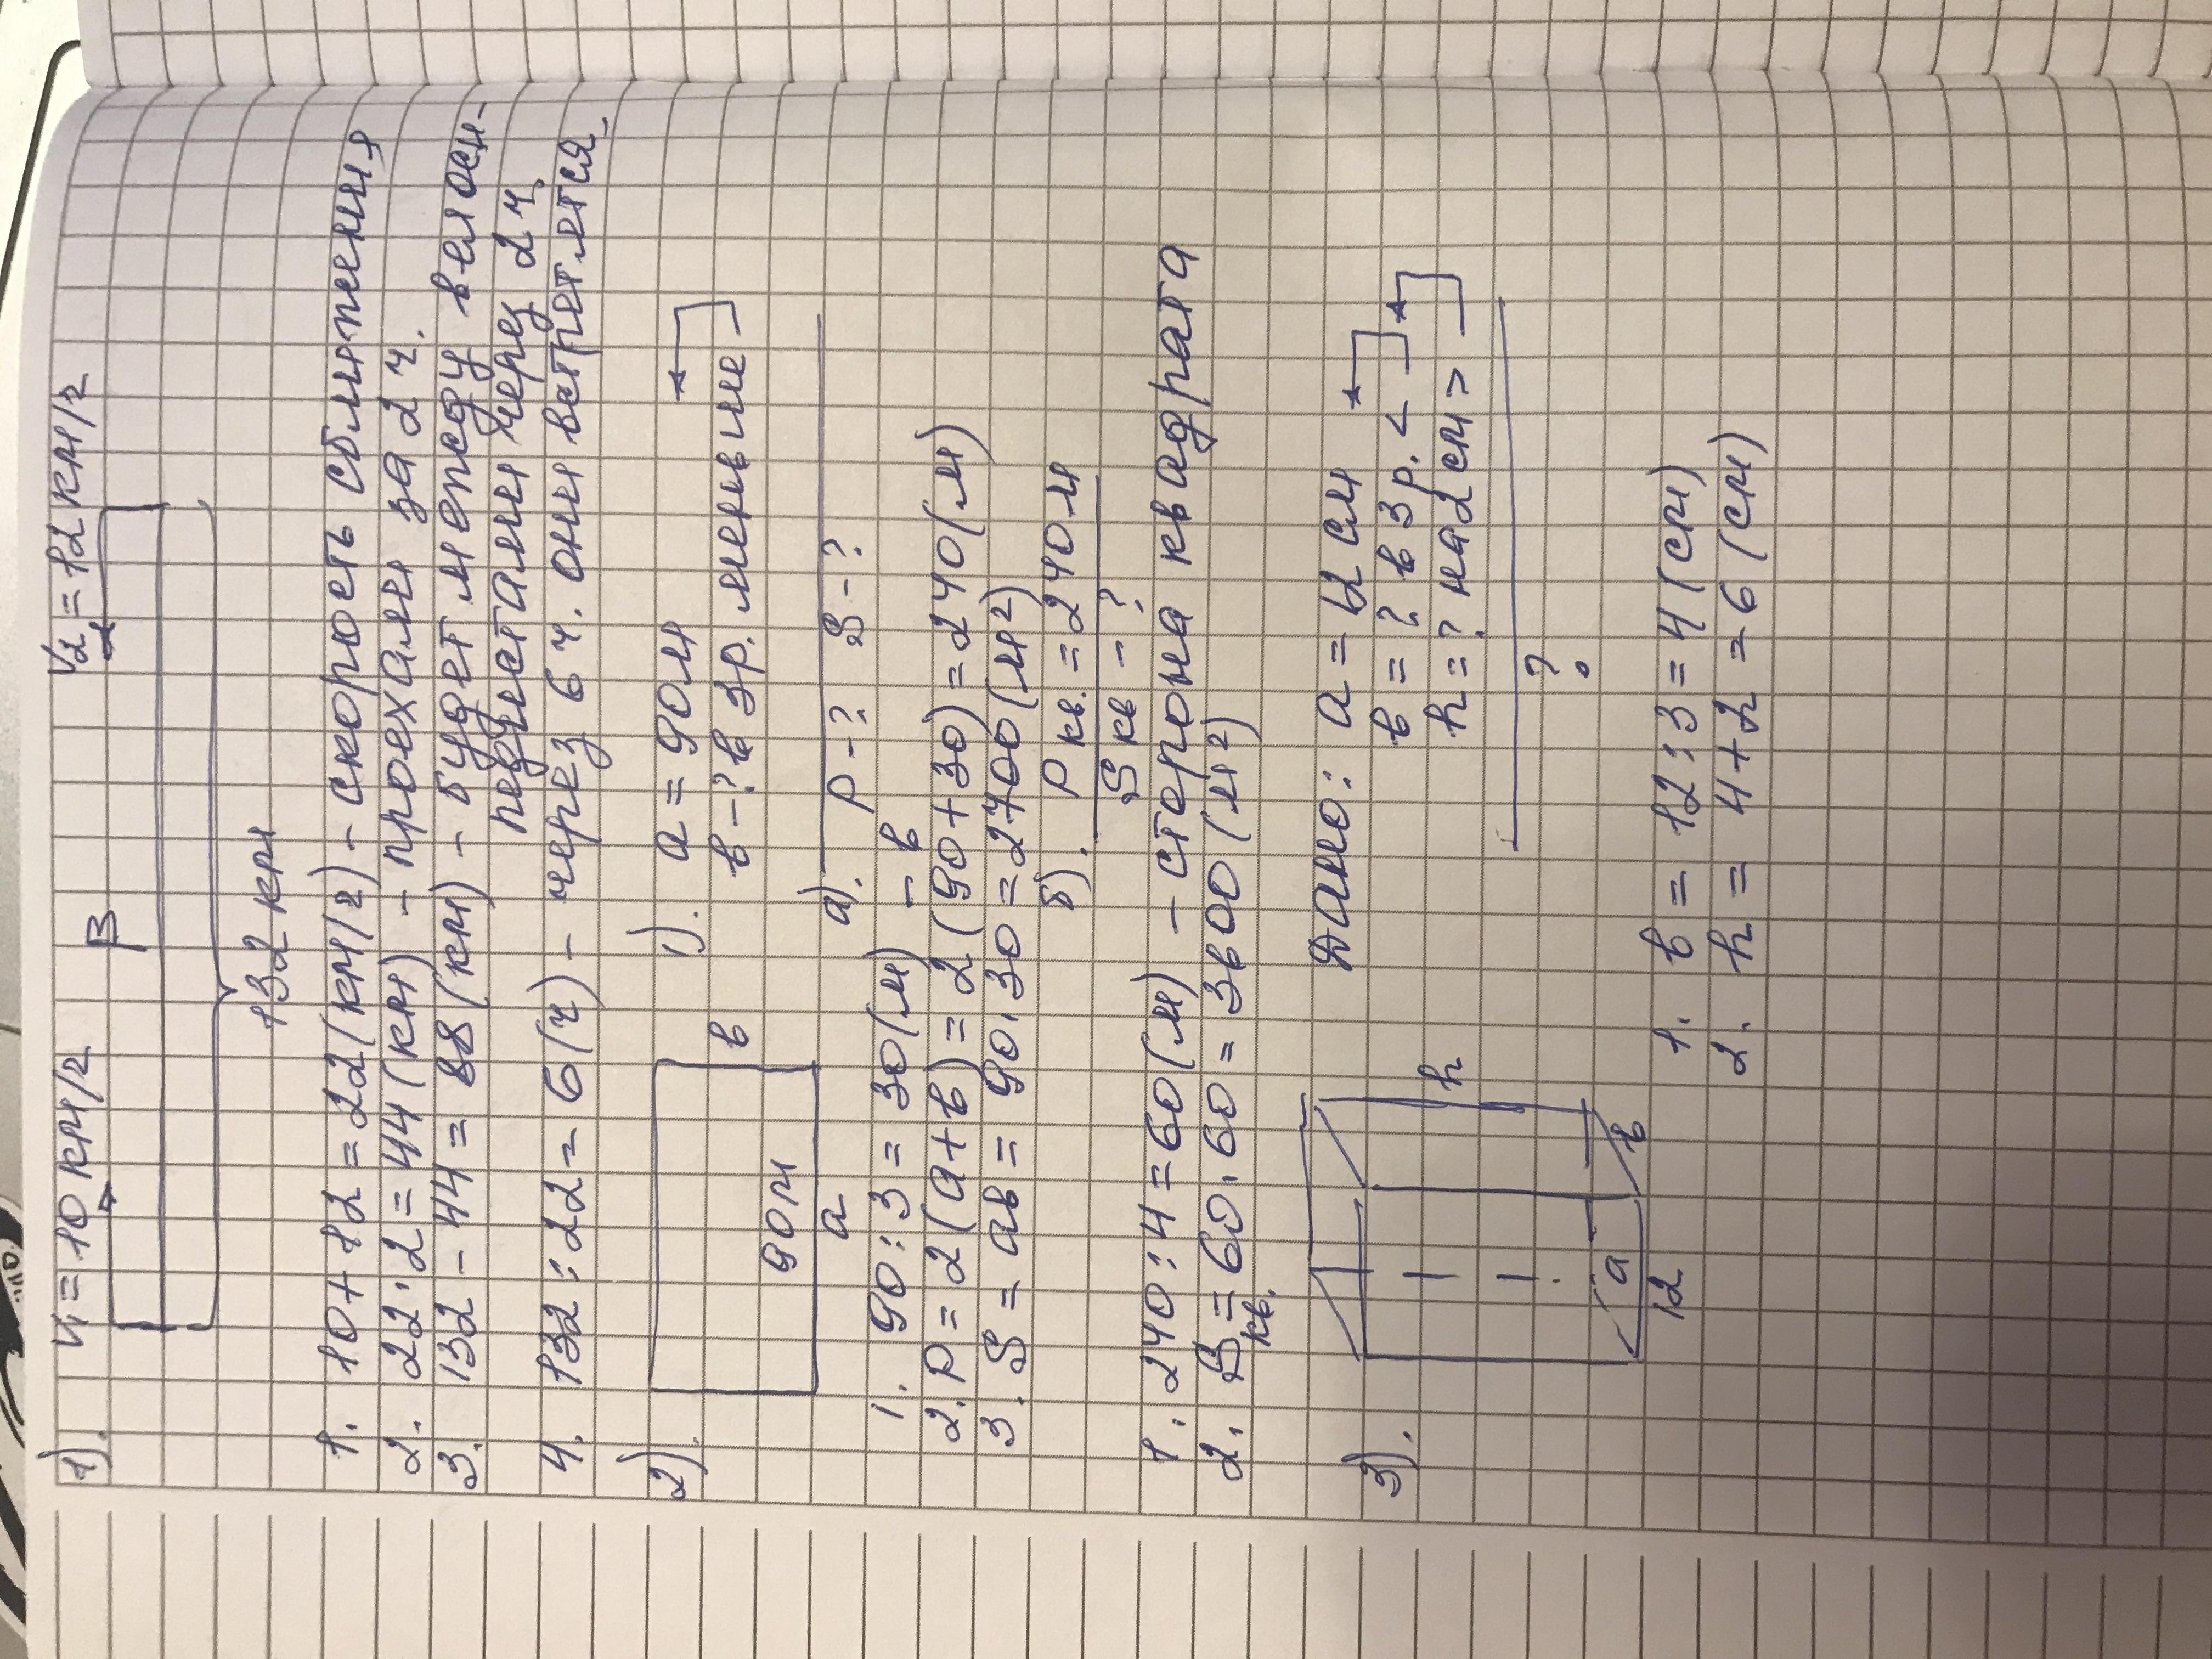 1). V₁ = 10 км/г V₂ = 12 км/г
В
132 км
1. 10 + 12 = 22 (км/г) - скорость сближения
2. 22 · 2 = 44 (км) - проехали за 2 ч.
3. 132 - 44 = 88 (км) - будет между велоси-
педистами через 2 ч.
4. 132 : 22 = 6 (ч) - через 6 ч. они встретятся.
2). 1). a = 90 м
в - ? в 3 р. меньше
в
90 м
a
а). P - ? S - ?
1. 90 : 3 = 30 (м) - в
2. P = 2 (a + в) = 2 (90 + 30) = 240 (м)
3. S = ав = 90 · 30 = 2700 (м²)
б). P кв. = 240 м
S кв - ?
1. 240 : 4 = 60 (м) - сторона квадрата
2. S кв. = 60 · 60 = 3600 (м²)
3). Дано: a = 12 см
в = ? в 3 р. <
h = ? на 2 см >
h
?
a
в
12
1. в = 12 : 3 = 4 (см)
2. h = 4 + 2 = 6 (см)